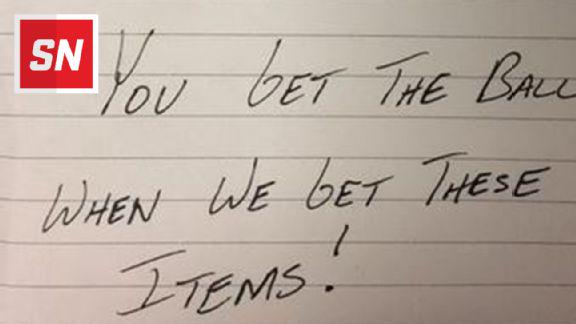 SN
YOU GET THE BALL
WHEN WE GET THESE
ITEMS!